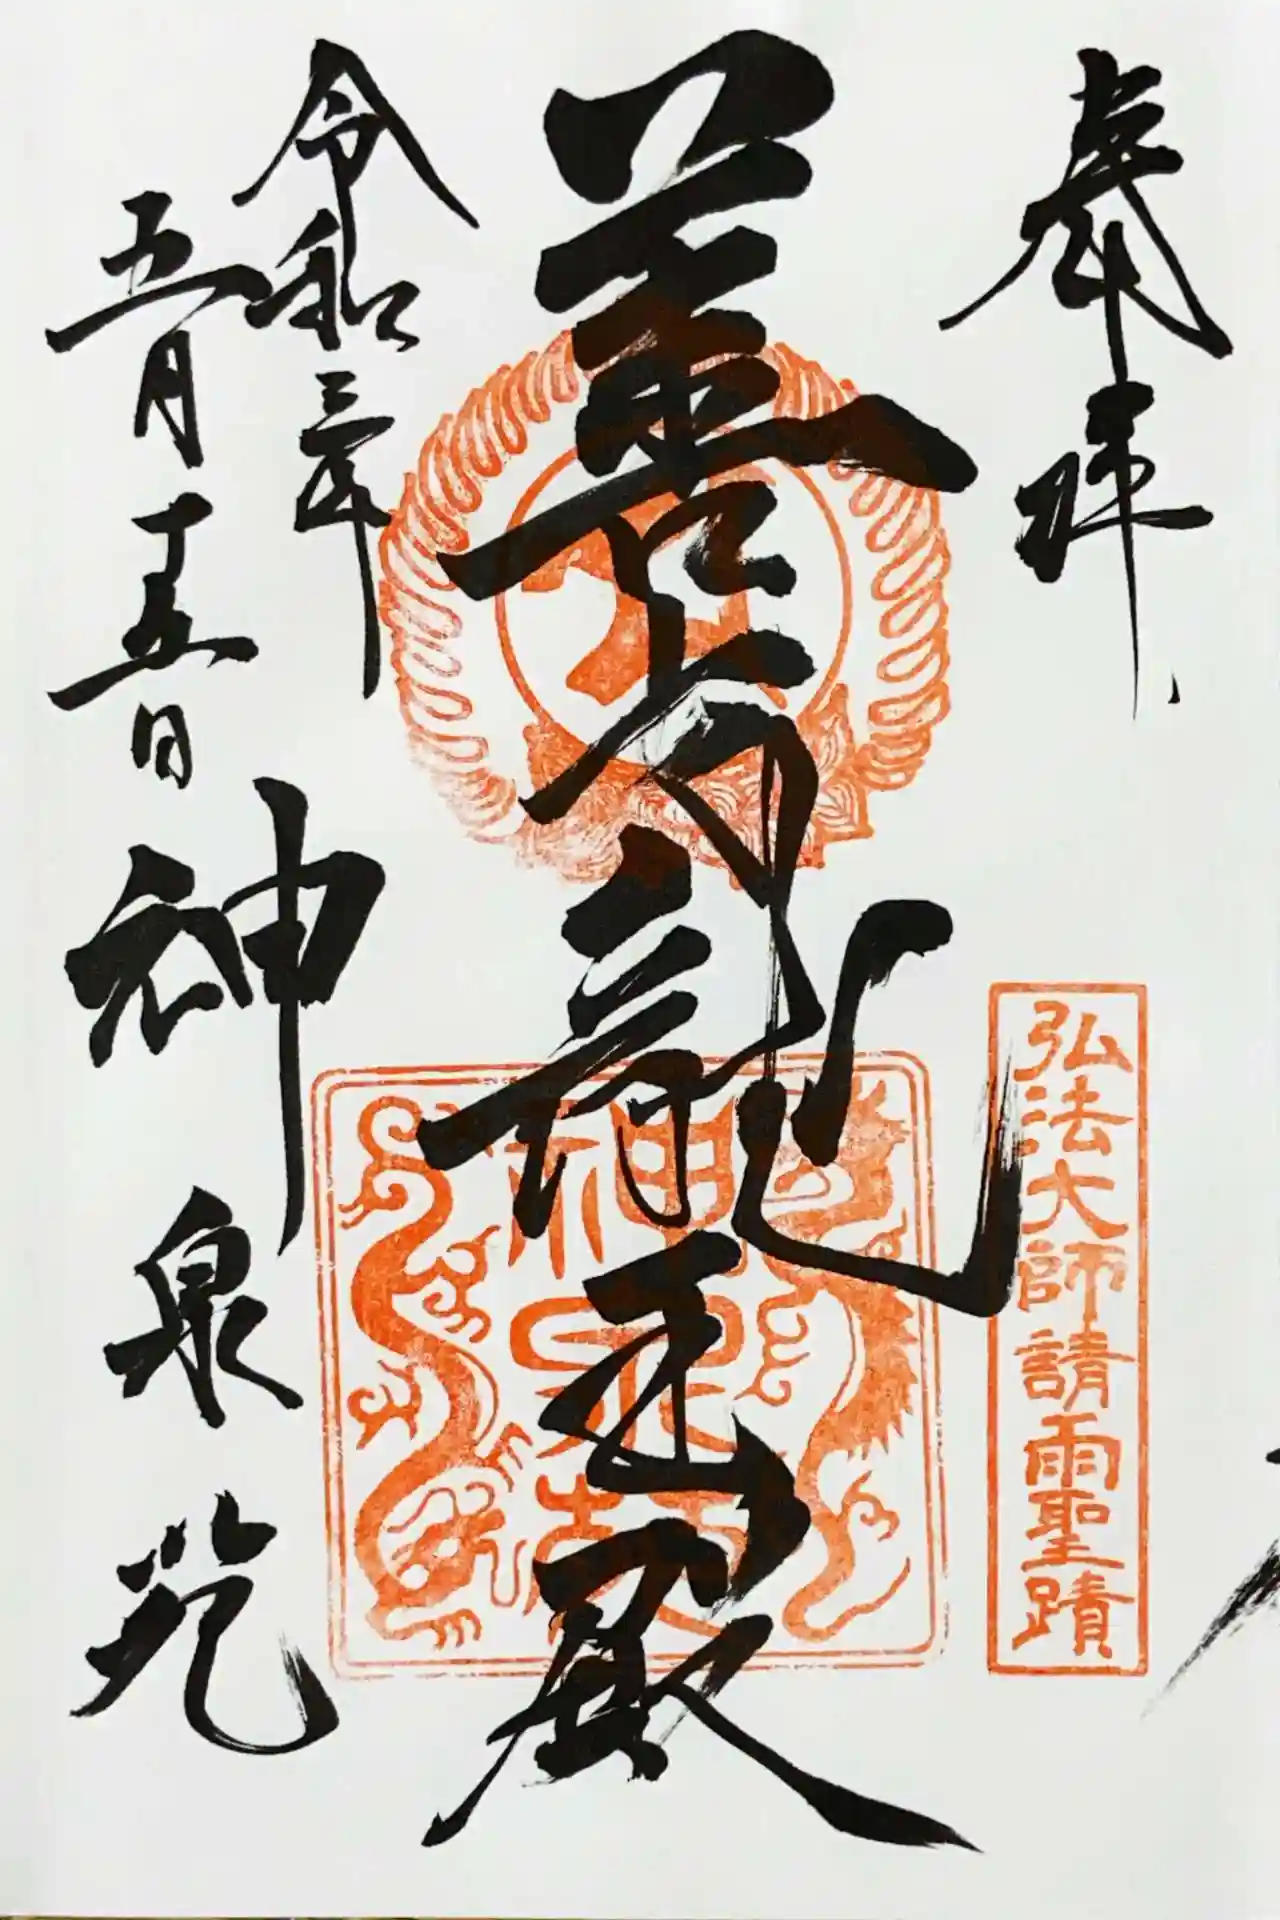 奉拝
弘法大師請雨聖蹟
善女龍王殿
神泉苑
令和三年
五月十五日
神泉苑